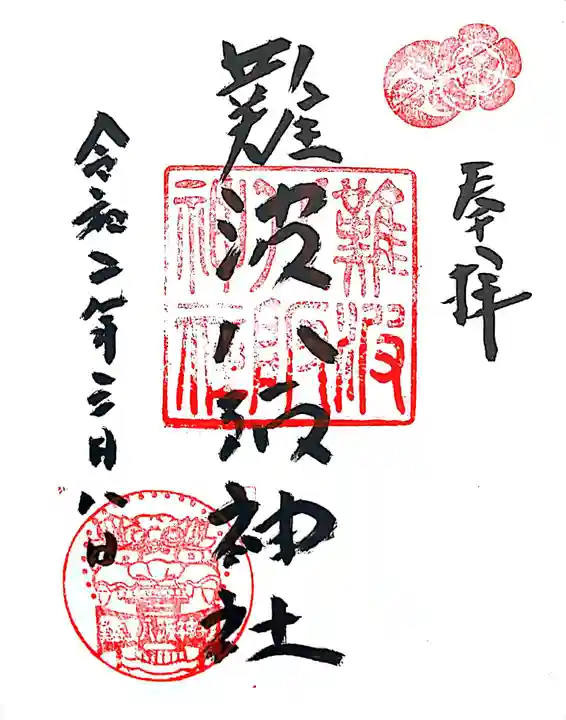 奉拝
難波八阪神社
難波八阪神社
令和二年三月八日